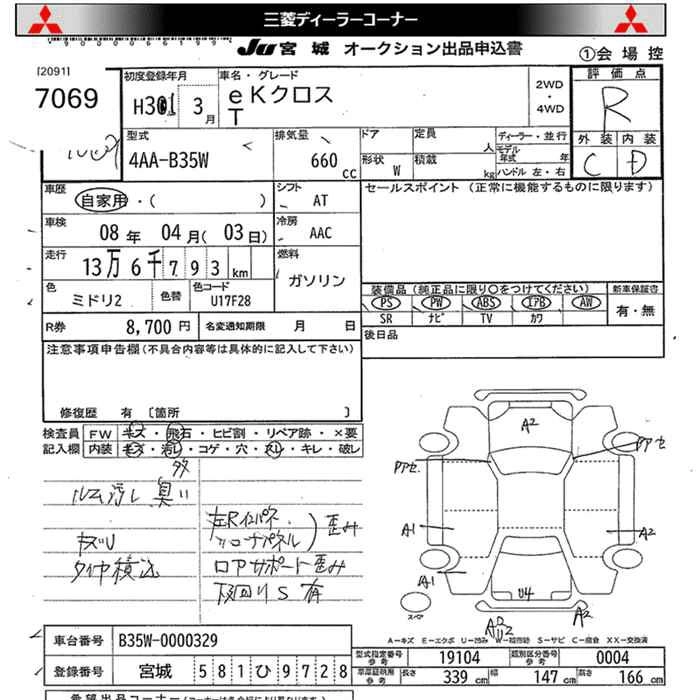 三菱ディーラーコーナー
JU 宮城 オークション出品申込書
①会場控
[2091]
7069
初度登録年月
H301 3月
車名・グレード
eKクロス
T
2WD
・
4WD
評価点
R
外装 内装
C D
型式
4AA-B35W
排気量
660 CC
ドア
形状 W
定員 人
積載 kg
ディーラー・並行
モデル年式 年
ハンドル 左・右
車歴
自家用・( )
シフト
AT
セールスポイント (正常に機能するものに限ります)
車検
08年 04月(03日)
冷房
AAC
走行
13万6千793km
燃料
ガソリン
色
ミドリ2
色替
色コード
U17F28
装備品(純正品に限り○をつけてください)
PS PW ABS エアB AW
SR ナビ TV カワ
新車保証書
有・無
R券 8,700円
名変通知期限 月 日
後日品
注意事項申告欄(不具合内容等は具体的に記入して下さい)
修復歴 有 〔箇所 〕
検査員記入欄
FW キズ・飛石・ヒビ割・リペア跡・×要
内装 キズ・汚レ・コゲ・穴・スレ・キレ・破レ
多
ルーム汚レ 臭い
キズU
タイヤ積込
左Rインパネ
〃コーナパネル
歪み
ロアサポート歪み
下回りS有
A2
Pアセ
Pアセ
A1
A2
A1
U4
A2
スペア
A-キズ E-エクボ U-凹 W-補修跡 S-サビ C-腐食 XX-交換済
車台番号 B35W-0000329
登録番号 宮城 581ひ9728
型式指定番号 参考 19104
類別区分番号 参考 0004
車庫証明用 参考
長さ 339 cm 幅 147 cm 高さ 166 cm
希望出品コーナー